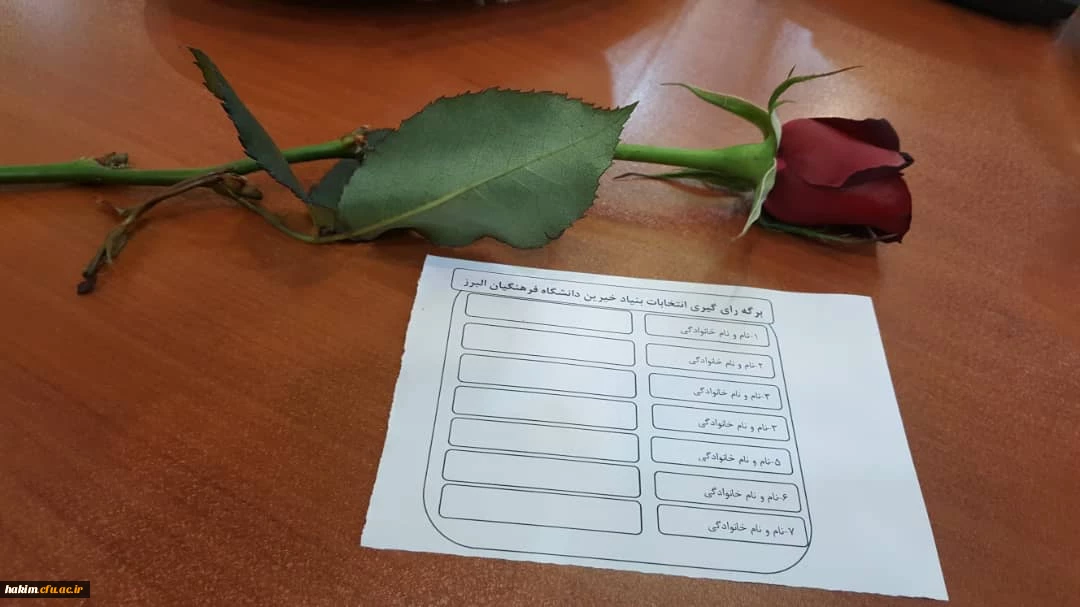 برگه رای گیری انتخابات بنیاد خیرین دانشگاه فرهنگیان البرز
۱-نام و نام خانوادگی
۲-نام و نام خانوادگی
۳-نام و نام خانوادگی
۳-نام و نام خانوادگی
۵-نام و نام خانوادگی
۶-نام و نام خانوادگی
۷-نام و نام خانوادگی
hakim.cfu.ac.ir